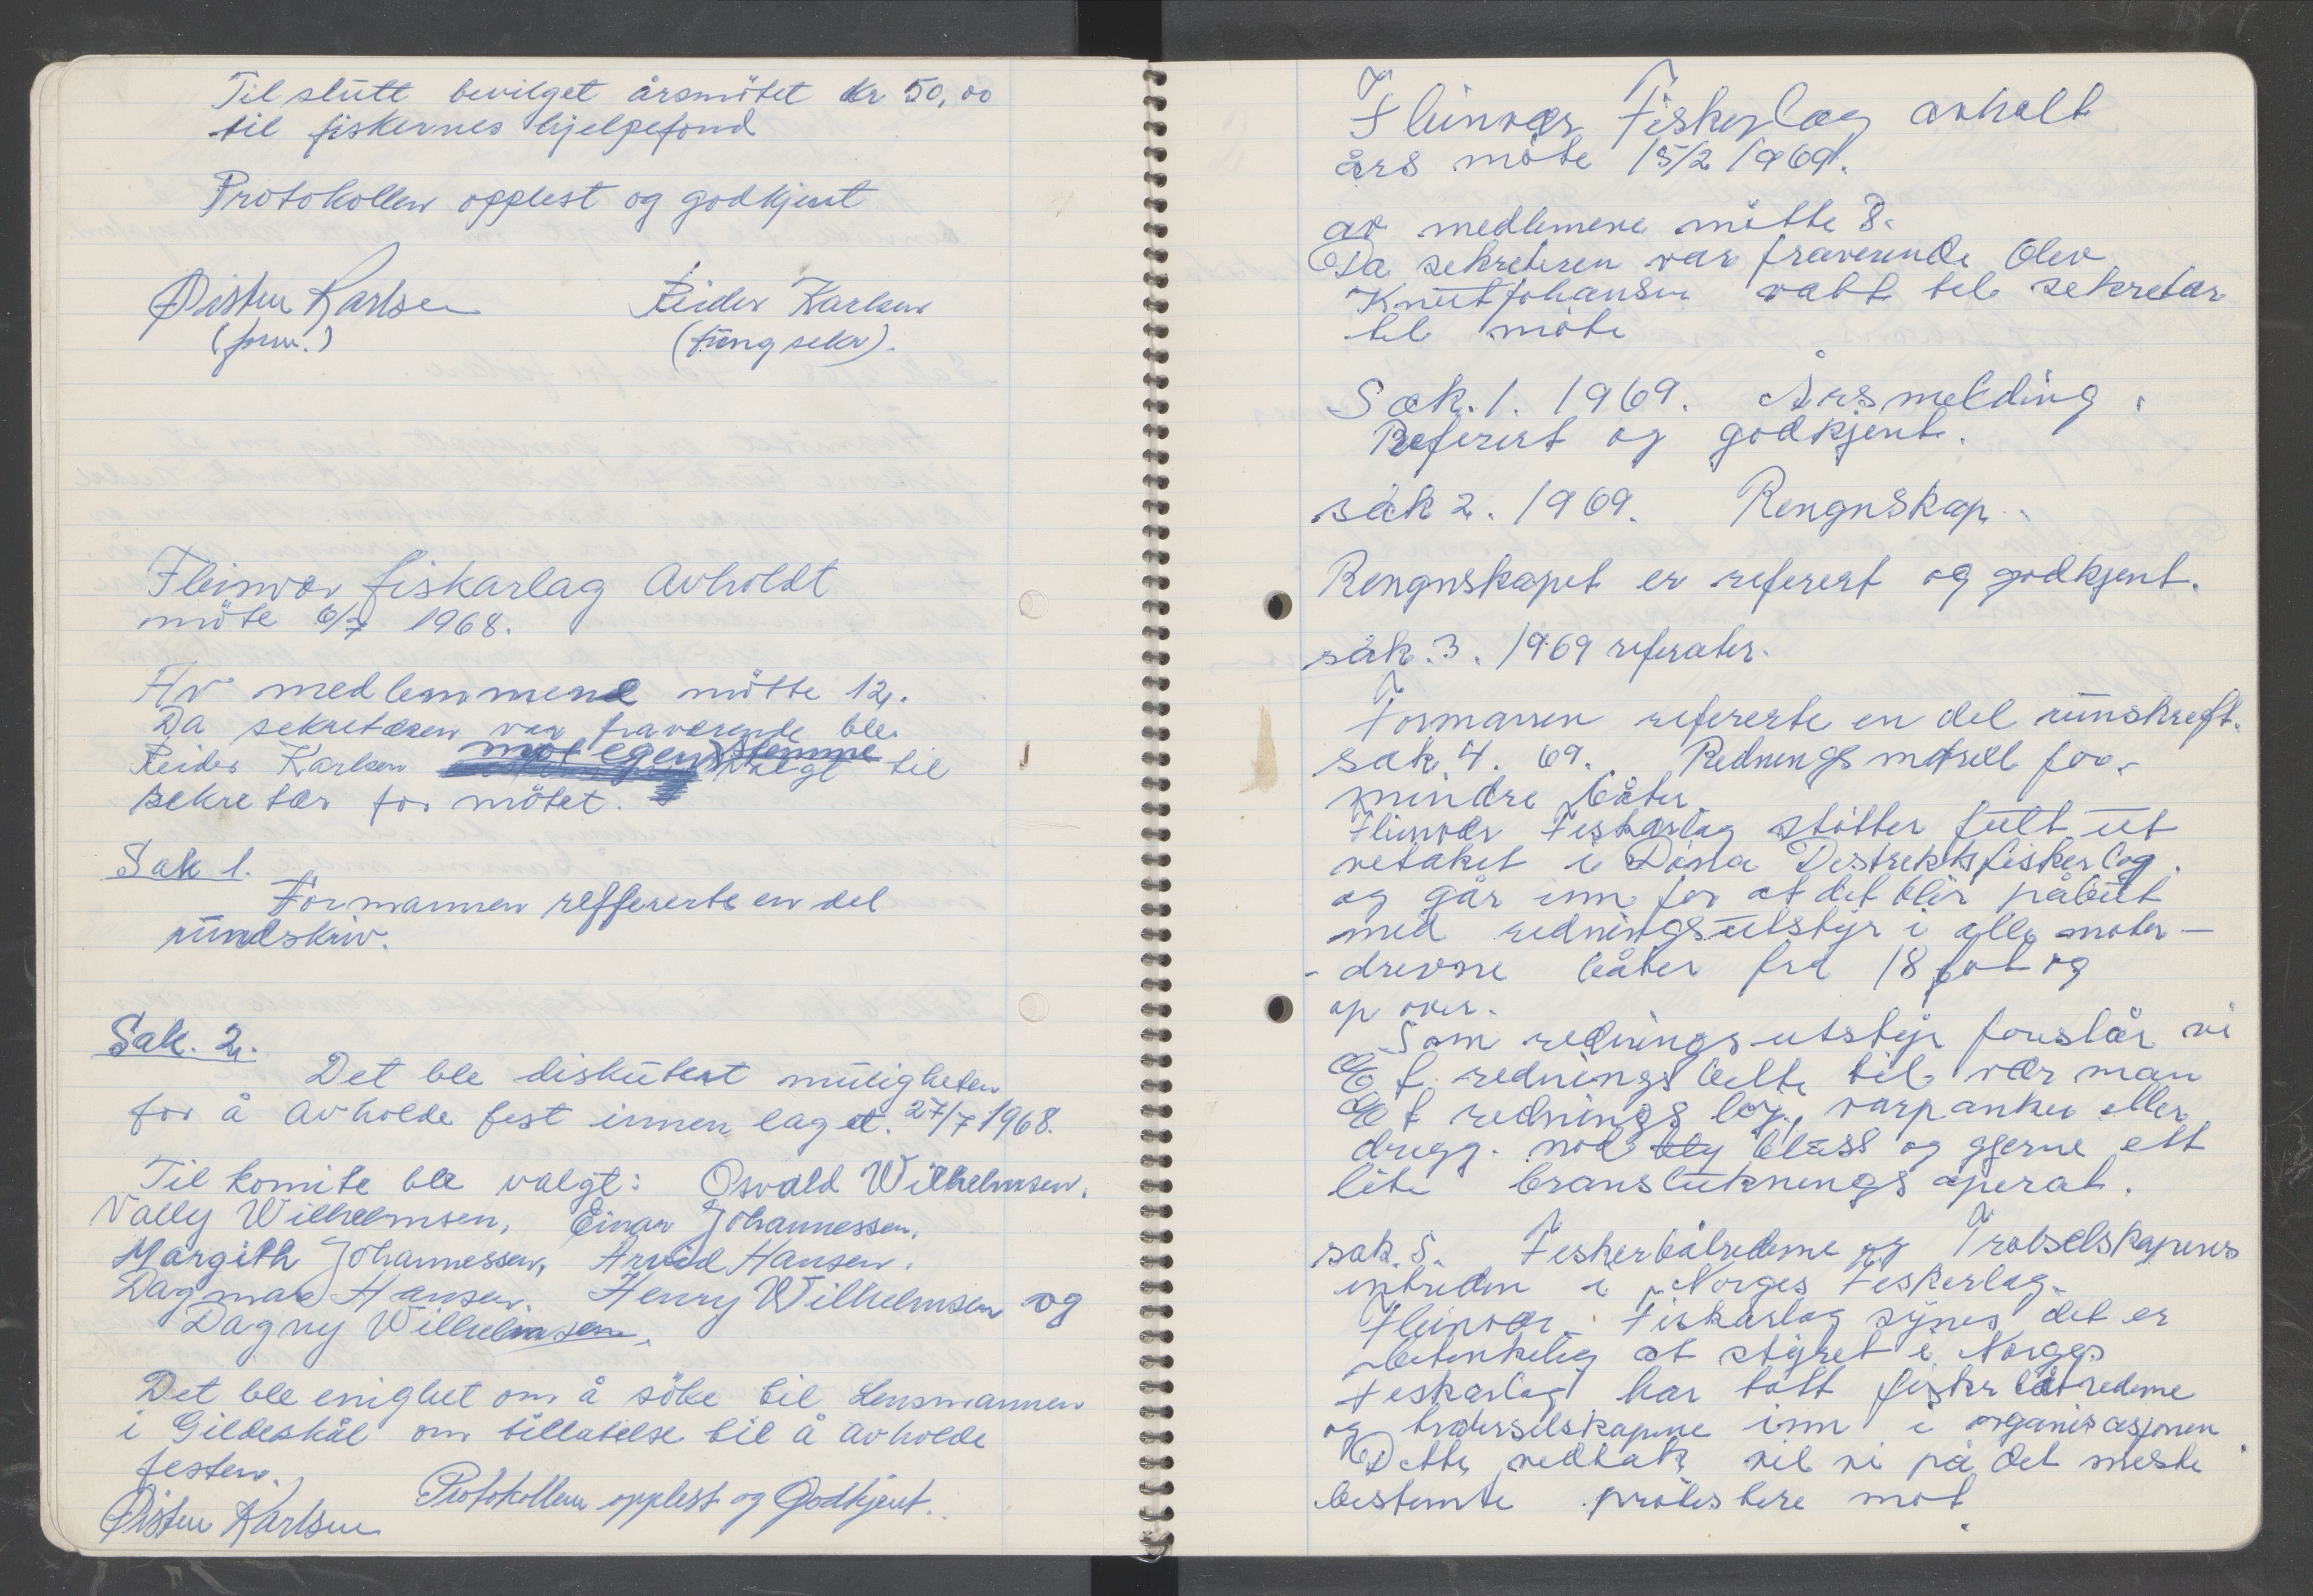 Til slutt bevilget årsmötet kr 50,00
til fiskernes hjelpefond
Protokollen opplest og godkjent
Øisten Karlsen Reider Karlsen
(form.) (fung sekr).
Fleinvær fiskarlag Avholdt
möte 6/7 1968.
Av medlemmene mötte 12.
Da sekretæren var fraværende ble
mot egen stemme
Reider Karlsen valgt til
sekretær for mötet.
Sak 1.
Formannen reffererte en del
rundskriv.
Sak. 2.
Det ble diskutert muligheten
for å avholde fest innen laget. 27/7 1968.
Til komite ble valgt: Osvald Wilhelmsen,
Vally Wilhelmsen, Einar Johannessen,
Margith Johannessen, Arvid Hansen,
Dagmar Hansen, Henry Wilhelmsen og
Dagny Wilhelmsen,
Det ble enighet om å söke til Lensmannen
i Gildeskål om tillatelse til å avholde
festen.
Protokollen opplest og Godkjent.
Øisten Karlsen
Fleinvær Fiskerlag avholt
års möte 15/2 1969.
av medlemene mötte 8.
Da sekreteren var fraverende blev
Knut Johansen valt til sekretær
til möte
Sak. 1. 1969. Årsmelding.
Referert og godkjent.
sak 2. 1969. Rengnskap.
Rengnskapet er referert og godkjent.
sak. 3. 1969 referater.
Formannen refererte en del runskreft.
sak. 4. 69. Rednings matrell for
mindre båter.
Fleinvær Fiskarlag stötter fult ut
vetaket i Dönna Destrektsfiskerlag.
og går inn for at det blir påbut
med redningsutstyr i alle moter-
-drevne båter fra 18 fot og
op over.
Som rednings-utstyr foreslår vi
Et. rednings belte til vær man
Et rednings log, varpanker eller
dregg. nöd bly bluss og gjerne ett
lite branslukningsaperat.
sak. 5. Feskerbåtrederne og Trålselskapenes
intreden i Norges Feskerlag.
Fleinvær Fiskarlag synes det er
betenkelig at styret i Norges
Feskarlag har tatt fisker båtrederne
og trålerselskapene inn i organisasjonen
Dette vedtak vil vi på det meste
bestemte protestere mot.